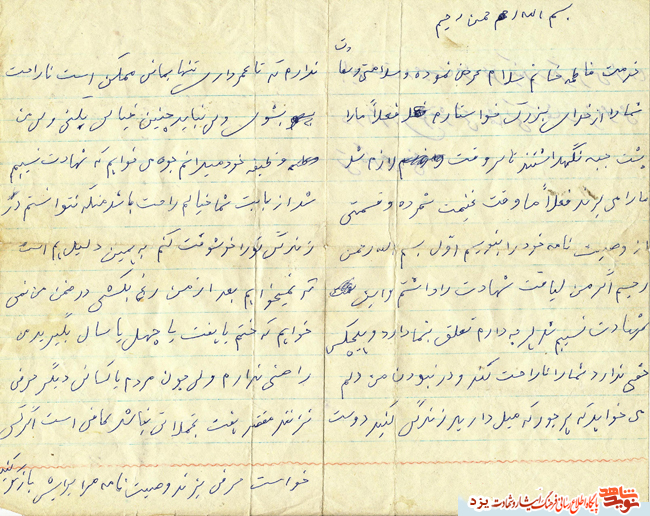 بسم الله الرحمن رحیم
خدمت فاطمه خانم سلام عرض نموده و سلامتی و سعادت
شما را از خدای بزرگ خواستارم فعلاً ما را
پشت جبهه نگهداشتند تا هر وقت لازم شد
ما را می برند فعلاً ما وقت غنیمت شمرده و قسمتی
از وصیت نامه خود را بنویسم اول بسم الله رحمن
رحیم اگر من لیاقت شهادت را داشتم و این
شهادت نصیبم شد هر چه دارم تعلق بشما دارد و هیچکس
حقی ندارد شما را ناراحت کند و در نبودن من دلم
می خواهد که هر جور که میل دارید زندگی کنید دوست
ندارم که تا عمر داری تنها بمانی ممکن است ناراحت
بشوی ولی نباید چنین خیالی بکنی ولی من
وظیفه خود میدانم جوری خواهم که شهادت نصیبم
شد از بابت شما خیالم راحت باشد منکه نتوانستم در
زندگی تو را خوشبخت کنم به همین دلیل هم است
که نمیخواهم بعد از من رنج بکشی در ضمن من نمی
خواهم که ختم یا هفت یا چهل یا سال بگیرید
راضی ندارم ولی چون مردم یا کسانی دیگر حرفی
نزنند فقط هفت تجملاتی نباشد کافی است اگر کسی
خواست حرفی بزند وصیت نامه مرا برایش بازگو کنید
نوید شاهد
پایگاه اطلاع رسانی فرهنگ ایثار و شهادت یزد